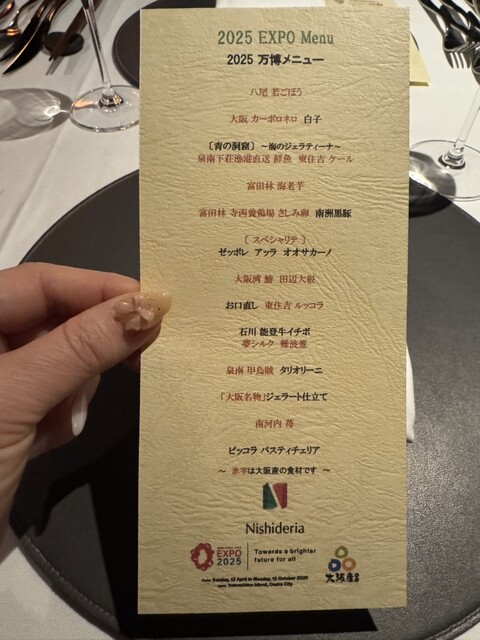 2025 EXPO Menu
2025 万博メニュー
八尾 若ごぼう
大阪 カーボロネロ 白子
〔青の洞窟〕 ～海のジェラティーナ～
泉南下荘漁港直送 鮮魚 東住吉 ケール
富田林 海老芋
富田林 寺西養鶏場 さしみ卵 南洲黒豚
〔 スペシャリテ 〕
ゼッポレ アッラ オオサカーノ
大阪湾 鰆 田辺大根
お口直し 東住吉 ルッコラ
石川 能登牛イチボ
夢シルク 難波葱
泉南 甲烏賊 タリオリーニ
「大阪名物」ジェラート仕立て
南河内 苺
ピッコラ パスティチェリア
～ 赤字は大阪産の食材です ～
Nishideria
EXPO
2025
Towards a brighter
future for all
Sunday, 13 April to Monday, 13 October 2025
Yumeshima Island, Osaka City
大阪産